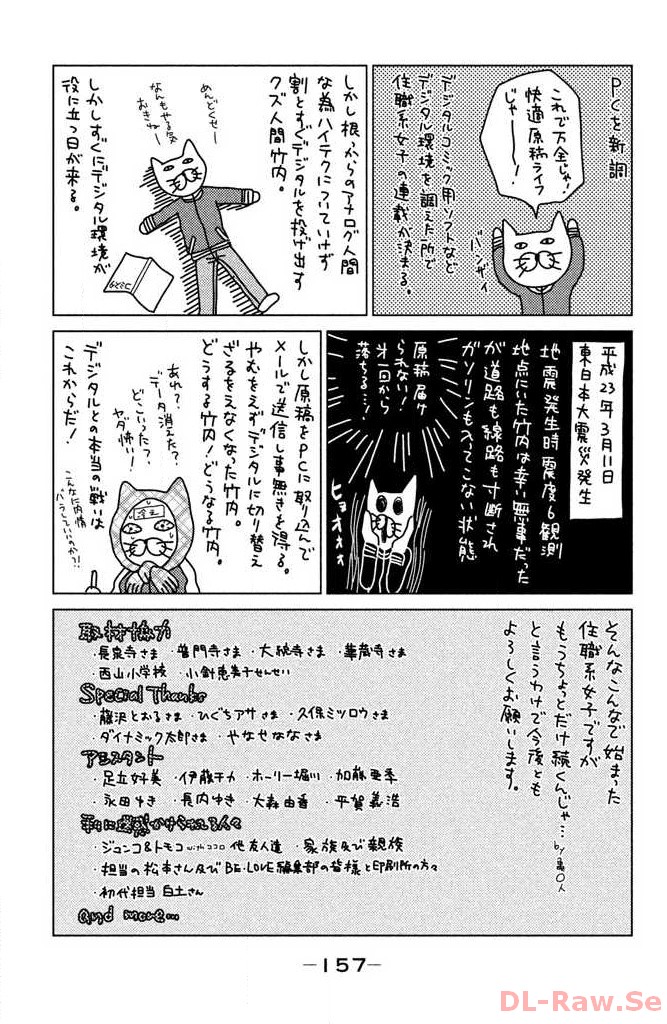 PCを新調
これで万全じゃ!
快適原稿ライフ
じゃー!
バンザイ
デジタルコミック用ソフトなど
デジタル環境を調えた所で
住職系女子の連載が決まる。
しかし根っからのアナログ人間
な為ハイテクについていけず
割とすぐデジタルを投げ出す
クズ人間竹内。
めんどくせー
なんもやる気
おきねー
しかしすぐにデジタル環境が
役に立つ日が来る。
平成23年3月11日
東日本大震災発生
地震発生時震度6観測
地点にいた竹内は幸い無事だった
が道路も線路も寸断され
ガソリンも入ってこない状態
原稿届け
られない!
オ一回から
落ちる…!
ヒョオォォ
しかし原稿をPCに取り込んで
メールで送信し事無きを得る。
やむをえずデジタルに切り替え
ざるをえなくなった竹内。
どうする竹内!どうなる竹内。
あれ?
データ消えた?
どこいった?
ヤダ怖い!
デジタルとの本当の戦いは
これからだ!
こんなに内情
バラしていいのか?!
そんなこんなで始まった
住職系女子ですが
もうちょっとだけ続くんじゃ…
と言うわけで今後とも
よろしくお願いします。
取材協力
・長泉寺さま ・普門寺さま ・大統寺さま ・華蔵寺さま
・西山小学校 ・小針恵美子せんせい
Special Thanks
・藤沢とおるさま ・ひぐちアサさま ・久保ミツロウさま
・ダイナミック太郎さま ・やなせななさま
アシスタント
・足立好美 ・伊藤チカ ・ホーリー堀川 ・加藤亜季
・永田ゆき ・長内ゆき ・大森由香 ・平賀義浩
・ジュンコ&トモコ withココロ 他友人達 ・家族及び親族
・担当の松本さん及びBE・LOVE編集部の皆様と印刷所の方々
・初代担当 白土さん
and more…
-157-
DL-Raw.Se